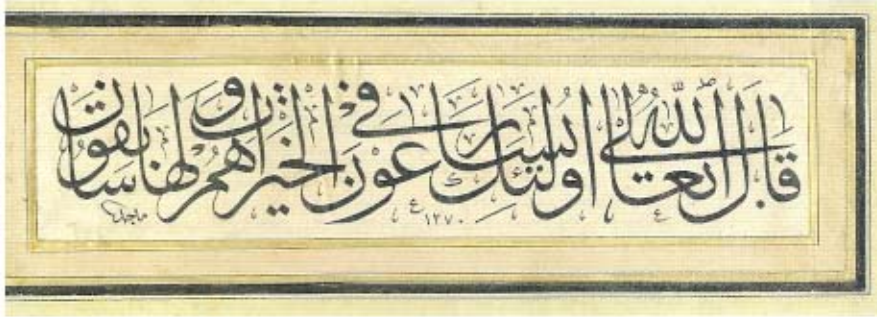 قال الله تعالى أولئك يسارعون في الخيرات وهم لها سابقون
ماجد ١٣٧٠